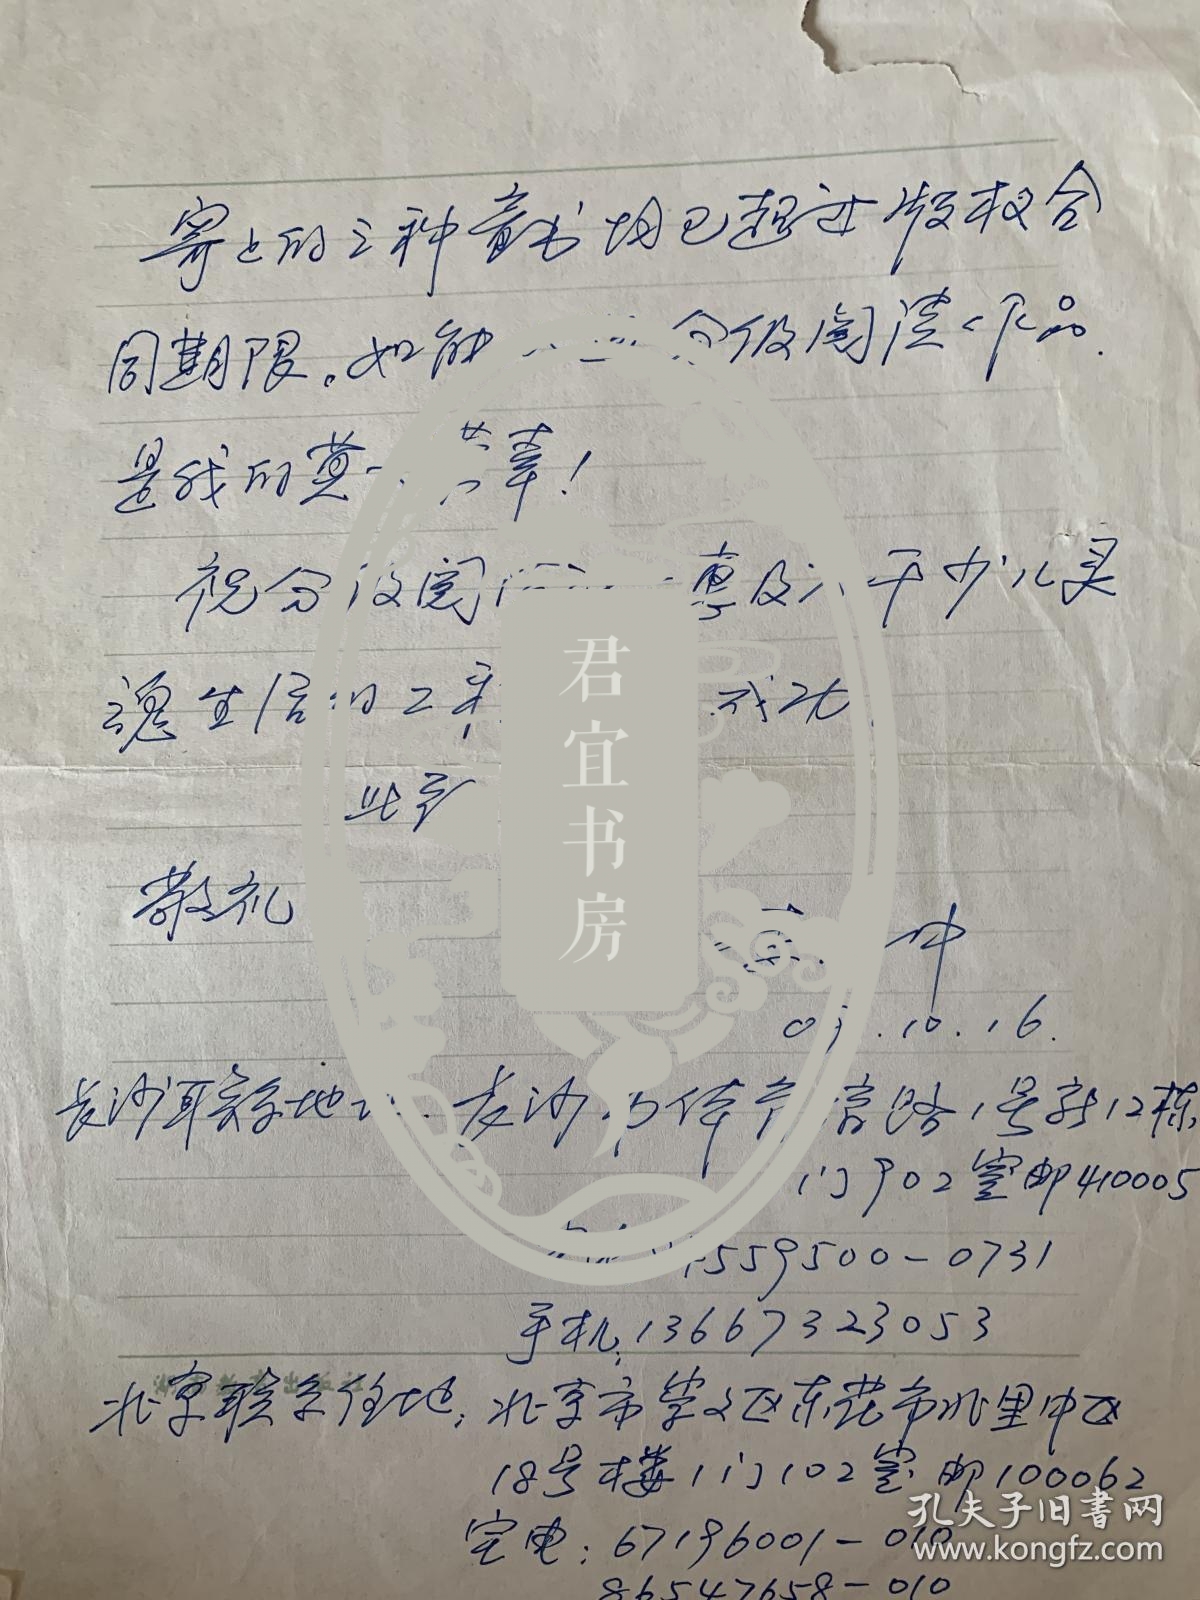 寄上的三种童书均已超过版权合
同期限。如能 分级阅读作品.
是我的莫 荣幸!
祝分级阅 惠及 千少儿灵
魂生活的工 成功
此致
敬礼
中
10.16.
长沙联系地 长沙市体育 路1号新12栋
门902室邮410005
559500-0731
手机:13667323053
北京联系住地:北京市崇文区东花市北里中区
18号楼1门102室 邮100062
宅电:67196001-010
86547658-010
君宜书房
孔夫子旧书网
www.kongfz.com